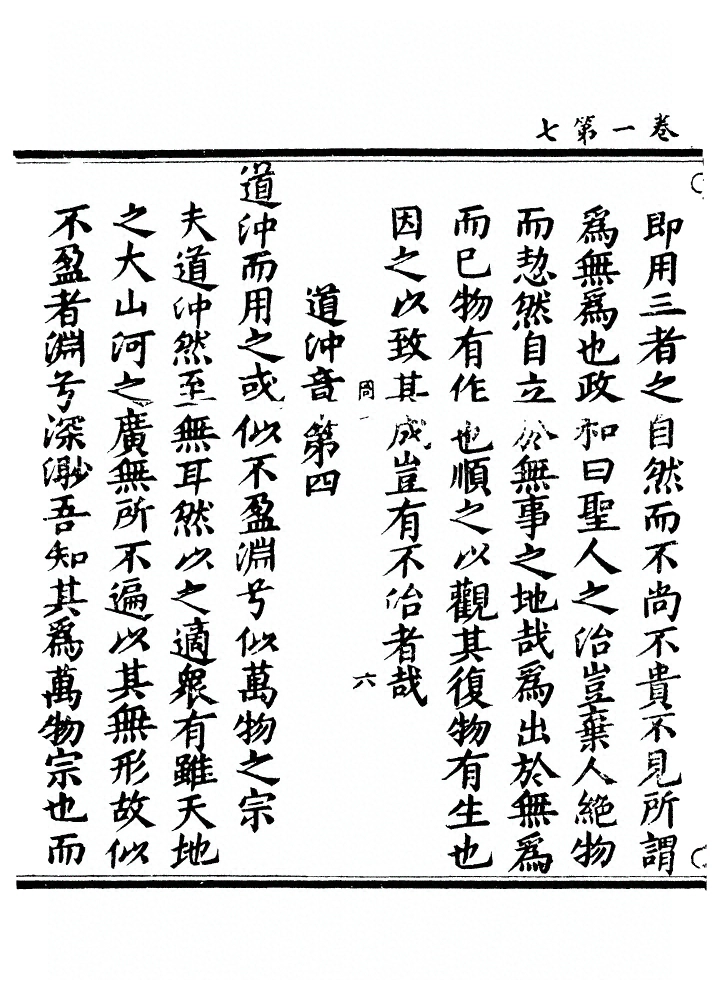 卷一第七
即用三者之自然而不尚不貴不見所謂
爲無爲也政和曰聖人之治豈棄人絶物
而恝然自立於無事之地哉爲出於無爲
而已物有作也順之以觀其復物有生也
因之以致其成豈有不治者哉
罔一 六
道沖章第四
道沖而用之或似不盈淵兮似萬物之宗
夫道沖然至無耳然以之適衆有雖天地
之大山河之廣無所不遍以其無形故似
不盈者淵兮深渺吾知其爲萬物宗也而